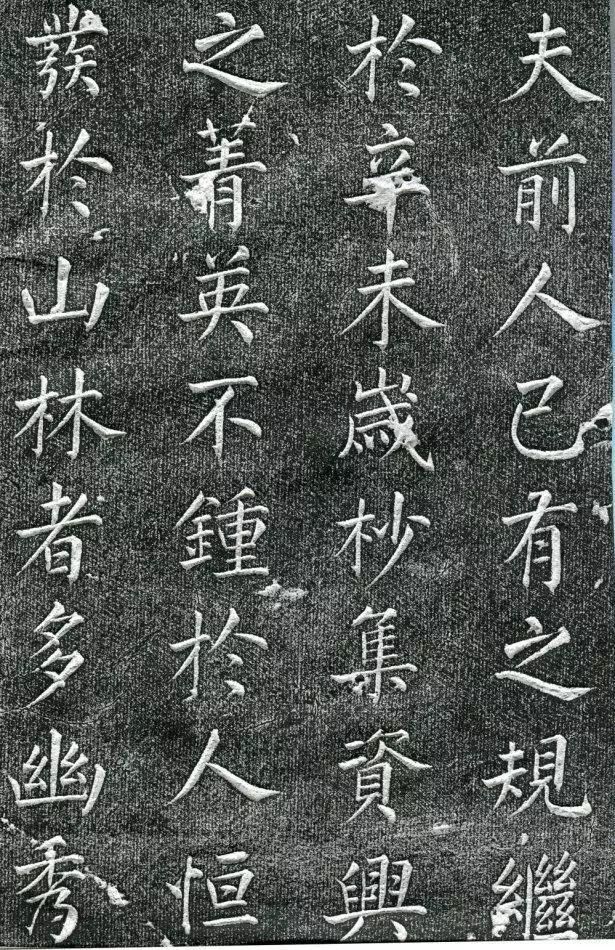 夫前人已有之規繼
於辛未歲杪集資興
之菁英不鍾於人恒
發於山林者多幽秀